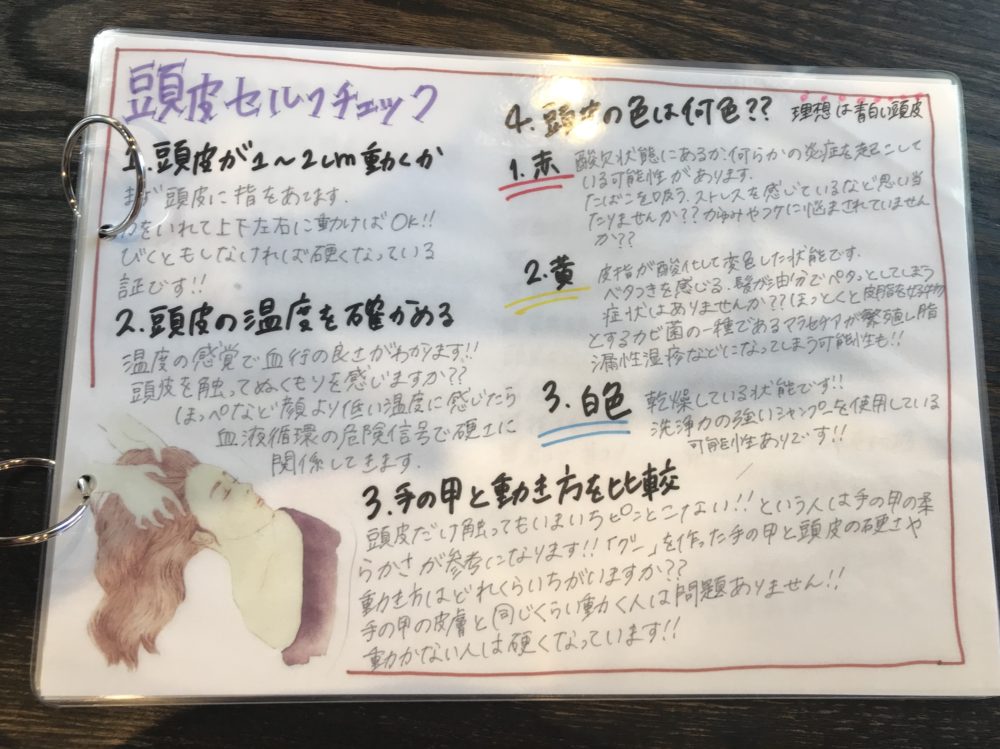 頭皮セルフチェック
1.頭皮が1〜2cm動くか
まず頭皮に指をあてます.
をいれて上下左右に動けばOK!!
びくともしなければ硬くなっている
証です!!
2.頭皮の温度を確かめる
温度の感覚で血行の良さがわかります!!
頭皮を触ってぬくもりを感じますか??
ほっぺなど顔より低い温度に感じたら
血液循環の危険信号で硬さに
関係してきます.
3.手の甲と動き方を比較
頭皮だけ触ってもいまいちピンとこない!!という人は手の甲の柔
らかさが参考になります!!「グー」を作った手の甲と頭皮の硬さや
動き方はどれくらいちがいますか??
手の甲の皮膚と同じくらい動く人は問題ありません!!
動かない人は硬くなっています!!
4.頭皮の色は何色?? 理想は青白い頭皮
1.赤 酸欠状態にあるか、何らかの炎症を起こして
いる可能性があります.
たばこを吸う、ストレスを感じているなど思い当
たりませんか??かゆみやフケに悩まされていません
か??
2.黄 皮脂が酸化して変色した状態です.
ベタつきを感じる、髪が油分でペタッとしてしまう
症状はありませんか??ほっとくと皮脂を好物
とするカビ菌の一種であるマラセチアが繁殖し脂
漏性湿疹などになってしまう可能性も!!
3.白色 乾燥している状態です!!
洗浄力の強いシャンプーを使用している
可能性ありです!!